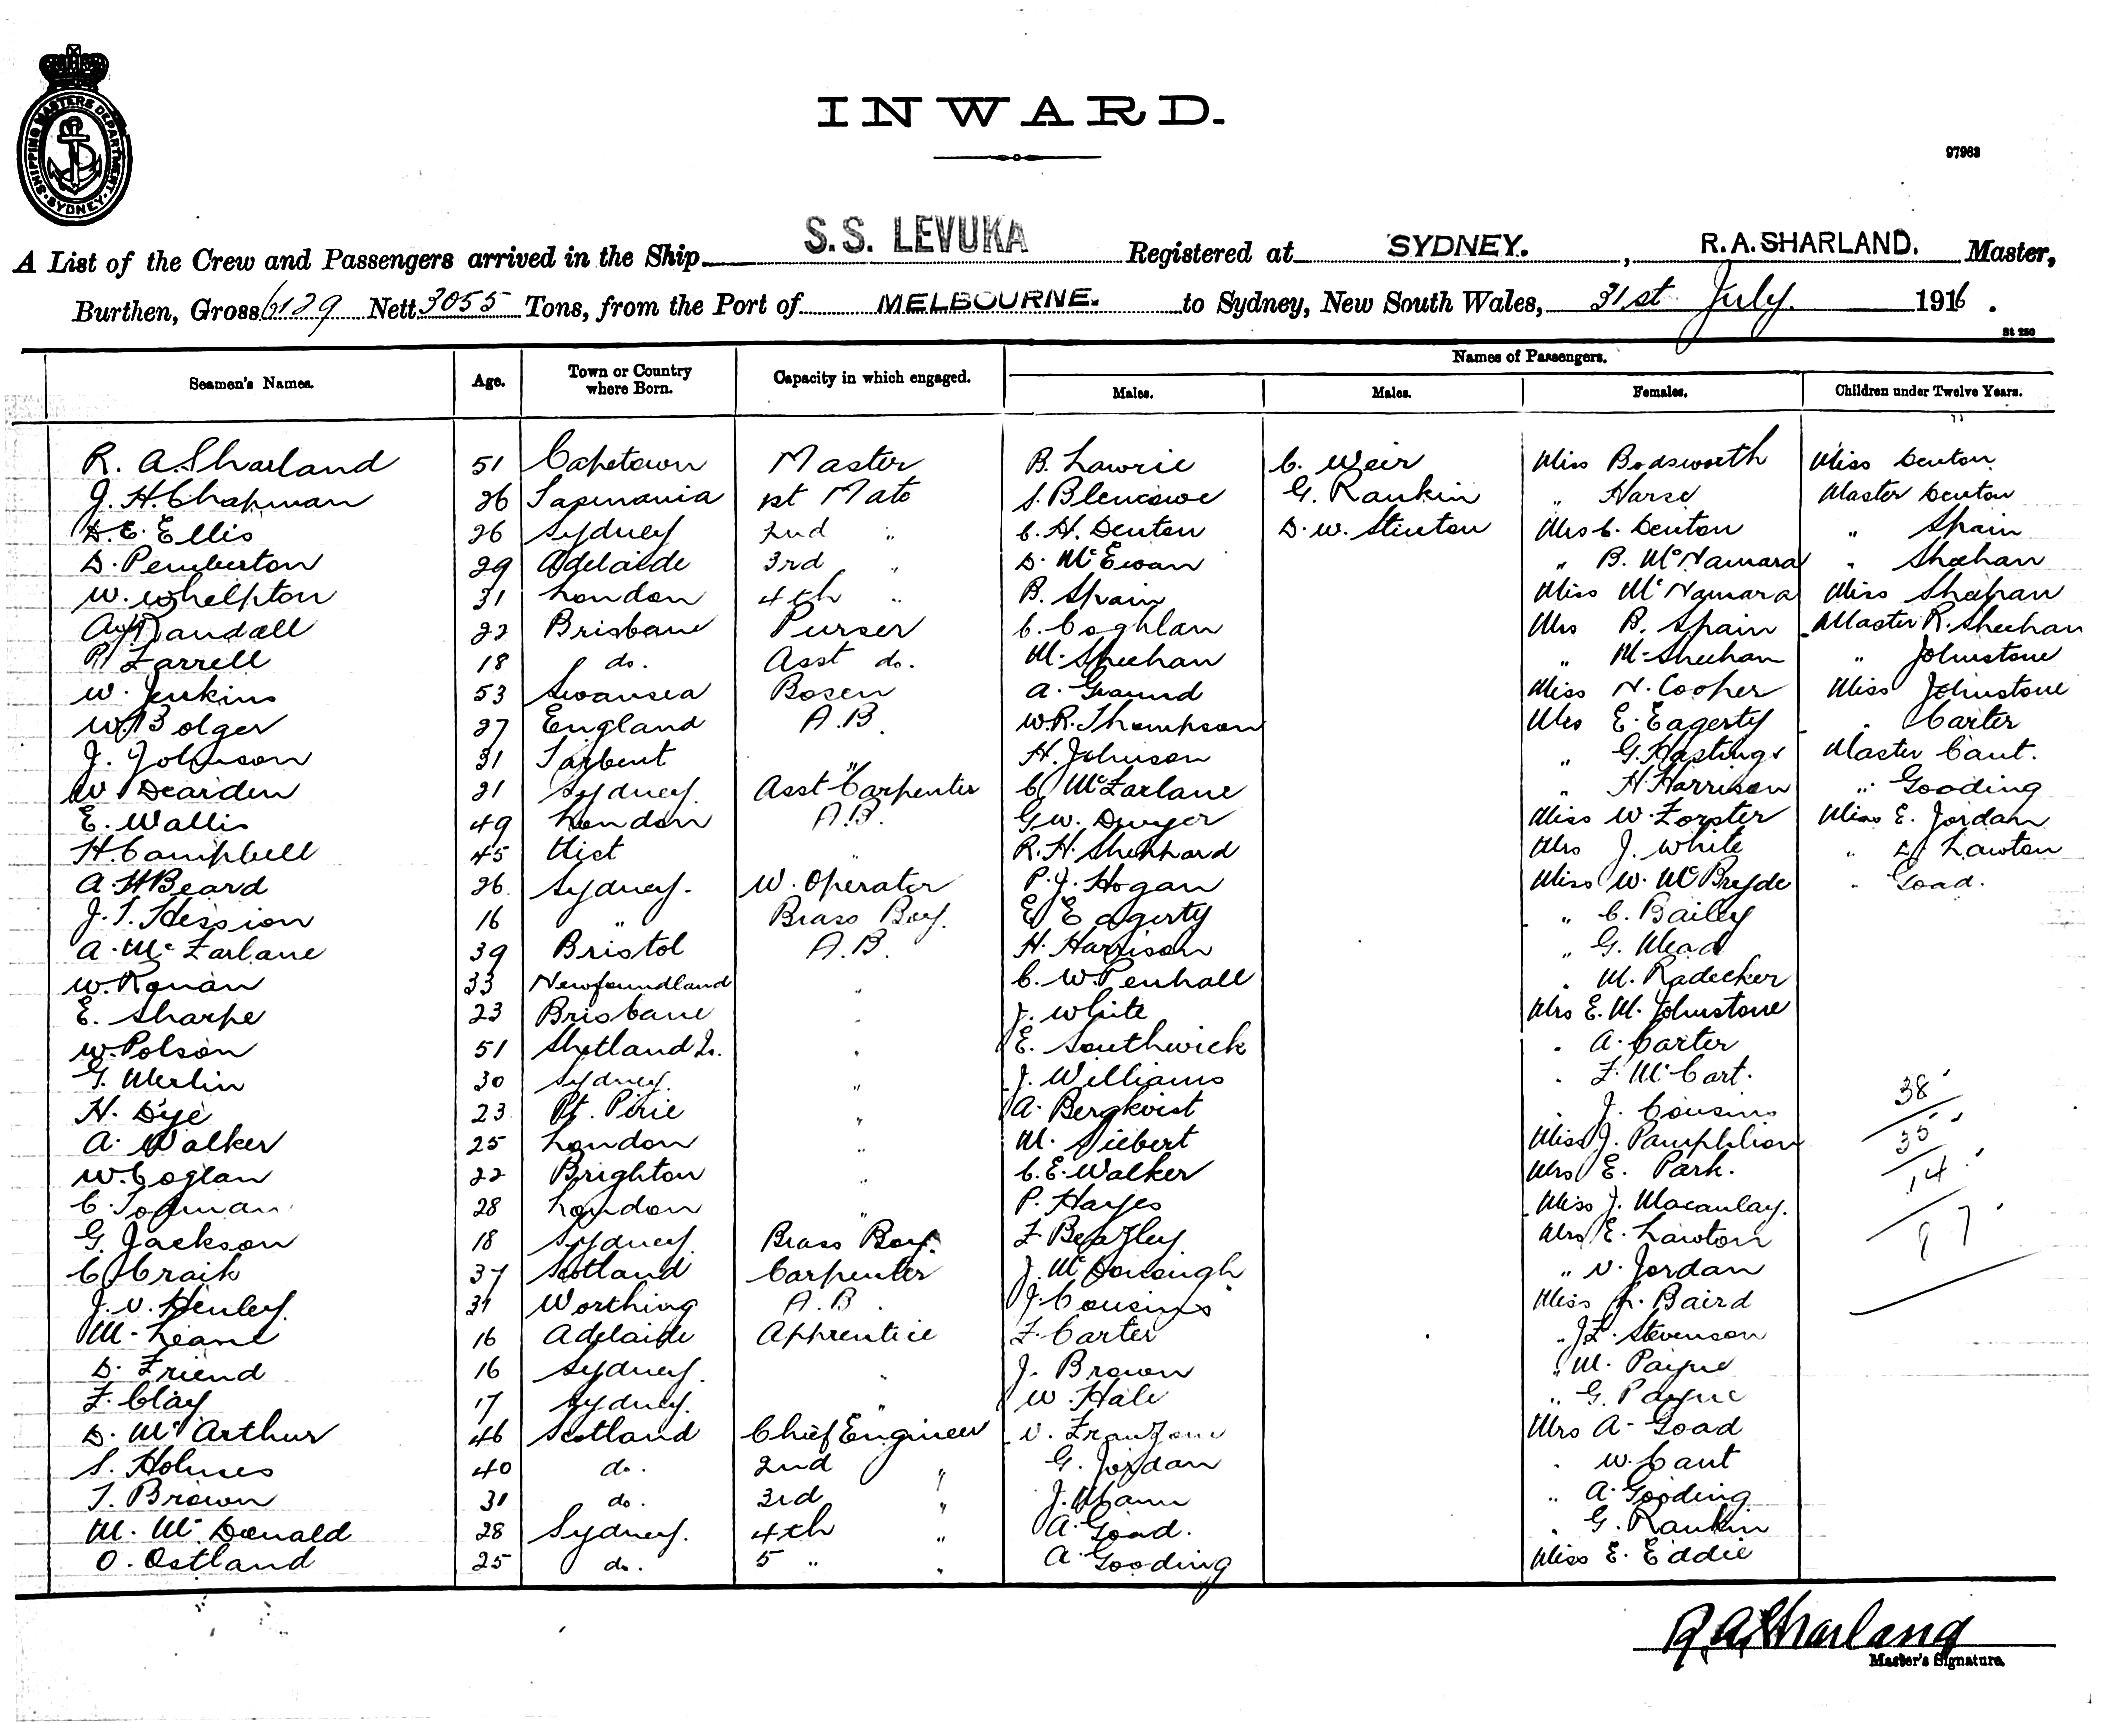 SHIPPING MASTERS DEPARTMENT. SYDNEY.
INWARD.
97963
A List of the Crew and Passengers arrived in the Ship S.S. LEVUKA Registered at SYDNEY. , R.A. SHARLAND. Master,
Burthen, Gross 6129 Nett 3055 Tons, from the Port of MELBOURNE. to Sydney, New South Wales, 31st July. 1916.
St 250
Names of Passengers.
Seamen's Names. Age. Town or Country where Born. Capacity in which engaged. Males. Males. Females. Children under Twelve Years.
R. A. Sharland 51 Capetown Master B. Lawrie C. Weir Miss Bodsworth Miss Denton
J. H. Chapman 26 Tasmania 1st Mate S. Blencowe G. Rankin " Harse Master Denton
D. E. Ellis 26 Sydney 2nd " C. H. Denton D. W. Stenton Mrs C. Denton " Spain
D. Pemberton 29 Adelaide 3rd " D. McEwan " B. McNamara " Sheehan
W. Whelpton 31 London 4th " B. Spain Miss McNamara Miss Sheehan
Randall 22 Brisbane Purser C. Coghlan Mrs B. Spain Master R. Sheehan
P. Farrell 18 do. Asst do. M. Sheehan " M. Sheehan " Johnstone
W. Jenkins 53 Swansea Bosen A. Ground Miss N. Cooper Miss Johnstone
W. Bolger 27 England A.B. W. R. Thompson Mrs E. Eagerty " Carter
J. Johnson 31 Tarbent " H. Johnson " G. Hastings Master Cant.
W Dearden 21 Sydney. Asst Carpenter C. McFarlane " H Harrison " Gooding
E. Wallis 49 London A.B. G. W. Dwyer Miss W. Forster Miss E. Jordan
H. Campbell 45 Uist " R. H. Shephard Mrs J. White " D. Lawton
A. H Beard 26 Sydney. W. Operator P. J. Hogan Miss W. McBryde " Goad.
J. T. Hession 16 " Brass Boy. E Eagerty " C. Bailey
A. McFarlane 39 Bristol A.B. H. Harrison " G. Mead
W. Ronan 33 Newfoundland " C. W. Penhall " M. Radecker
E. Sharpe 23 Brisbane " J. White Mrs E. M. Johnstone
W. Polson 51 Shetland Is. " E. Southwick " A. Carter
G. Merlin 30 Sydney. " J. Williams " F. McCart.
H. Dye 23 Pt. Pirie " A. Bergkvist " J. Cousins
A. Walker 25 London " M. Siebert Miss J. Pamphlion
W. Coglan 22 Brighton " C. E. Walker Mrs E. Park.
C. 28 London " P. Hayes Miss J. Macaulay.
G. Jackson 18 Sydney. Brass Boy. F Beazley. Mrs E. Lawton
C. Craik 37 Scotland Carpenter J. McDonough " V. Jordan
J. V. Henley. 31 Worthing A.B. J. Cousins Miss Baird
M. Leane 16 Adelaide Apprentice F. Carter " J. F. Stevenson
D. Friend 16 Sydney. " J. Brown " M. Payne
F. Clay 17 Sydney. " W. Hale " G. Payne
D. McArthur 46 Scotland Chief Engineer V. Franzone Mrs A. Goad
S. Holmes 40 do. 2nd " G. Jordan " W. Cant
T. Brown 31 do. 3rd " J. Mann " A. Gooding
M. McDonald 28 Sydney. 4th " A. Goad. " G. Rankin
O. Ostland 25 do. 5 " " A. Gooding Miss E. Eddie
38
35
14
97
R. A. Sharland
Master's Signature.